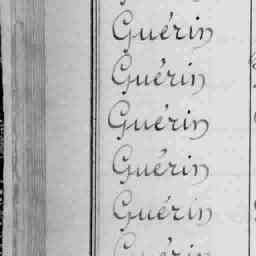 Guérin
Guérin
Guérin
Guérin
Guérin
Guérin